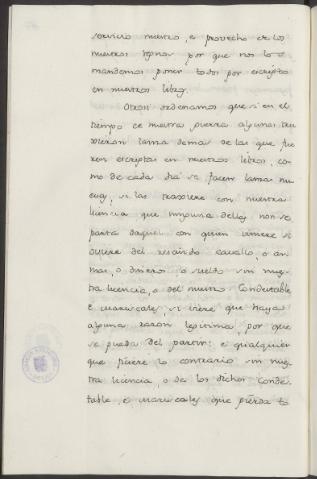 servicio nuestro, e provecho de los
nuestros Reynos por que nos lo
mandemos poner todo por escripto
en nuestros libros.
Otrosi ordenamos que si en el
tiempo de nuestra guerra algunos tru
xieren lanza demas de las que fue
ren escriptas en nuestros libros, co
mo de cada dia se facen lanzas nu
evas, si las traxiere con nuestra
licencia que ninguna dellas non se
parta daquel con quien viniere si
oviere del rescivido cavallo, o ar
mas, o dinero, o sueldo sin nues
tra licencia, o del nuestro Condestable,
e Mariscales, si viere que haya
alguna razon legitima, por que
se pueda del partir: e qualquier
que ficiere lo contrario sin nues
tra licencia, o de los dichos Conde
table, e Mariscales que pierda la